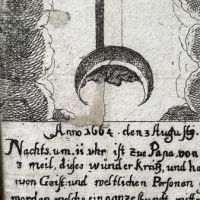 Anno 1664. den 3 Augusti
Nachts, um. 11 uhr ist zue Papa von
3 meil, dises wůnder Kreütz, und
von Geist: und weltlichen Personen
worden welche ein gantze